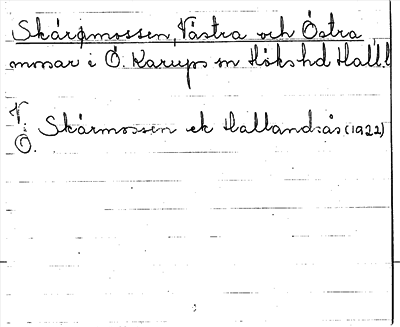 Skärmossen, Västra och Östra
mossar i Ö. Karups sn Höks hd Hall.l
V.
Ö. Skärmossen ek Hallandsås (1922)